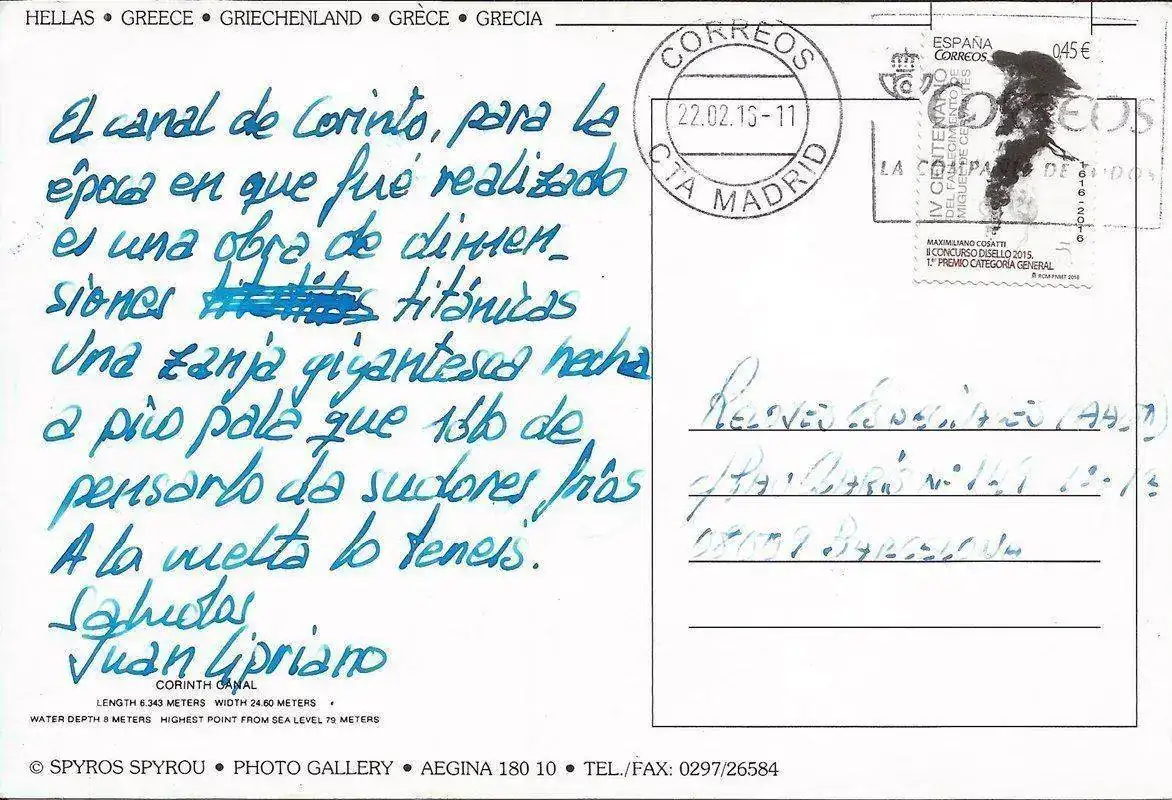 HELLAS • GREECE • GRIECHENLAND • GRÈCE • GRECIA
El canal de Corinto, para la
época en que fué realizado
es una obra de dimen-
siones titánicas
Una zanja gigantesca hecha
a pico pala que sólo de
pensarlo da sudores fríos
A la vuelta lo teneis.
Saludos
Juan Cipriano
CORINTH CANAL
LENGTH 6.343 METERS WIDTH 24.60 METERS
WATER DEPTH 8 METERS HIGHEST POINT FROM SEA LEVEL 79 METERS
© SPYROS SPYROU • PHOTO GALLERY • AEGINA 180 10 • TEL./FAX: 0297/26584
CORREOS
22.02.16-11
CTA MADRID
ESPAÑA
CORREOS
0,45 €
IV CENTENARIO
DEL FALLECIMIENTO DE
MIGUEL DE CERVANTES
1616-2016
MAXIMILIANO COSATTI
II CONCURSO DISELLO 2015.
1.er PREMIO CATEGORÍA GENERAL
RCM-FNMT 2016
CORREOS
LA COMPAÑÍA DE TODOS
RELOVES
BARCELONA